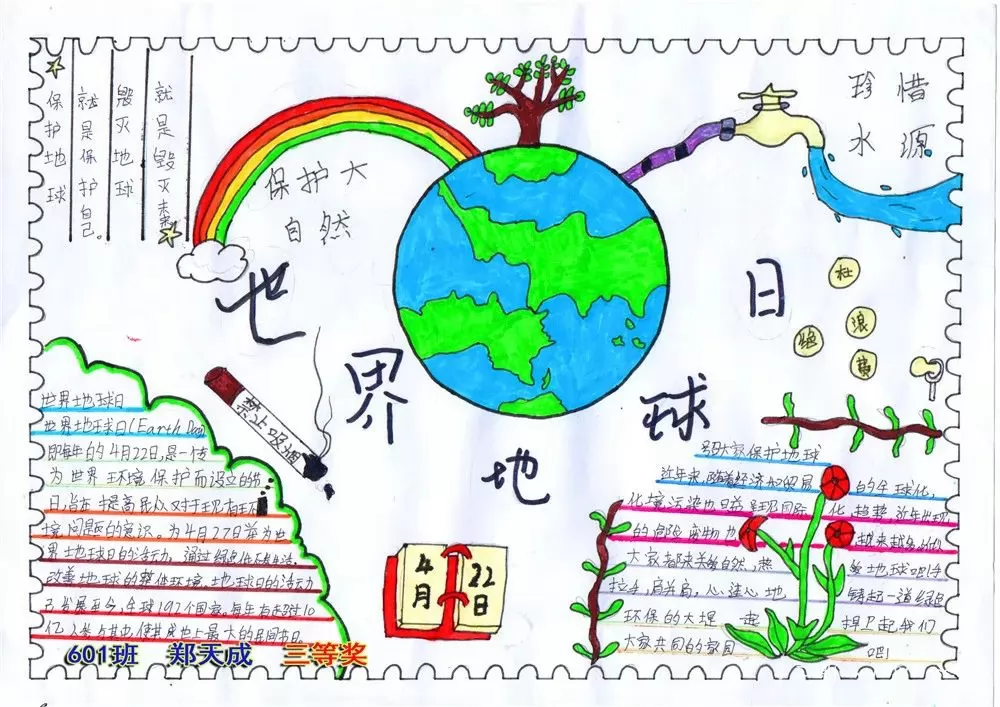 保护地球
就是保护自己。
毁灭地球
就是毁灭未
保护大
自然
珍惜
水源
世界地球日
杜
绝
浪
费
禁止吸烟
4月
22日
世界地球日
世界地球日(Earth Day)
即每年的4月22日,是一个
为世界环境保护而设立的节
日,旨在提高民众对于现有环
境问题的意识。
界地球日的活动,通过绿色低碳生活,
改善地球的整体环境,地球日的活动
已发展至今,全球192个国家,每年有超过10
亿人参与其中,使其成为世上最大的民间节日。
号召大家保护地球
近年来,随着经济的发展 的全球化,
化,环境污染也日益呈现国际化,趋势,近年出现
的 废物 越来越多
大家都来关爱自然,热爱地球吧!手
拉手,肩并肩,心连心地 铸起一道绿色
环保的大堤 起 捍卫起我们
大家共同的家园 吧!
601班 郑天成 三等奖